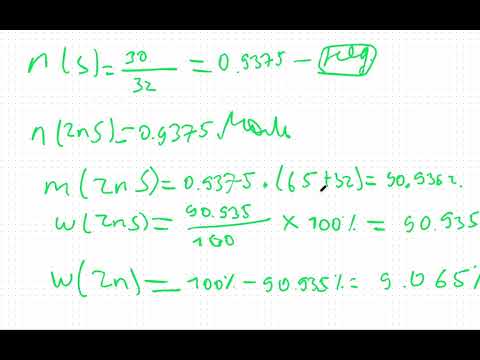 n(S)=30/32=0.9375-нед
n(ZnS)=0.9375 моль
m(ZnS)=0.9375·(65+32)=90.936г.
w(ZnS)=90.935/100×100%=90.935
w(Zn)=100%-90.935%=9.065%